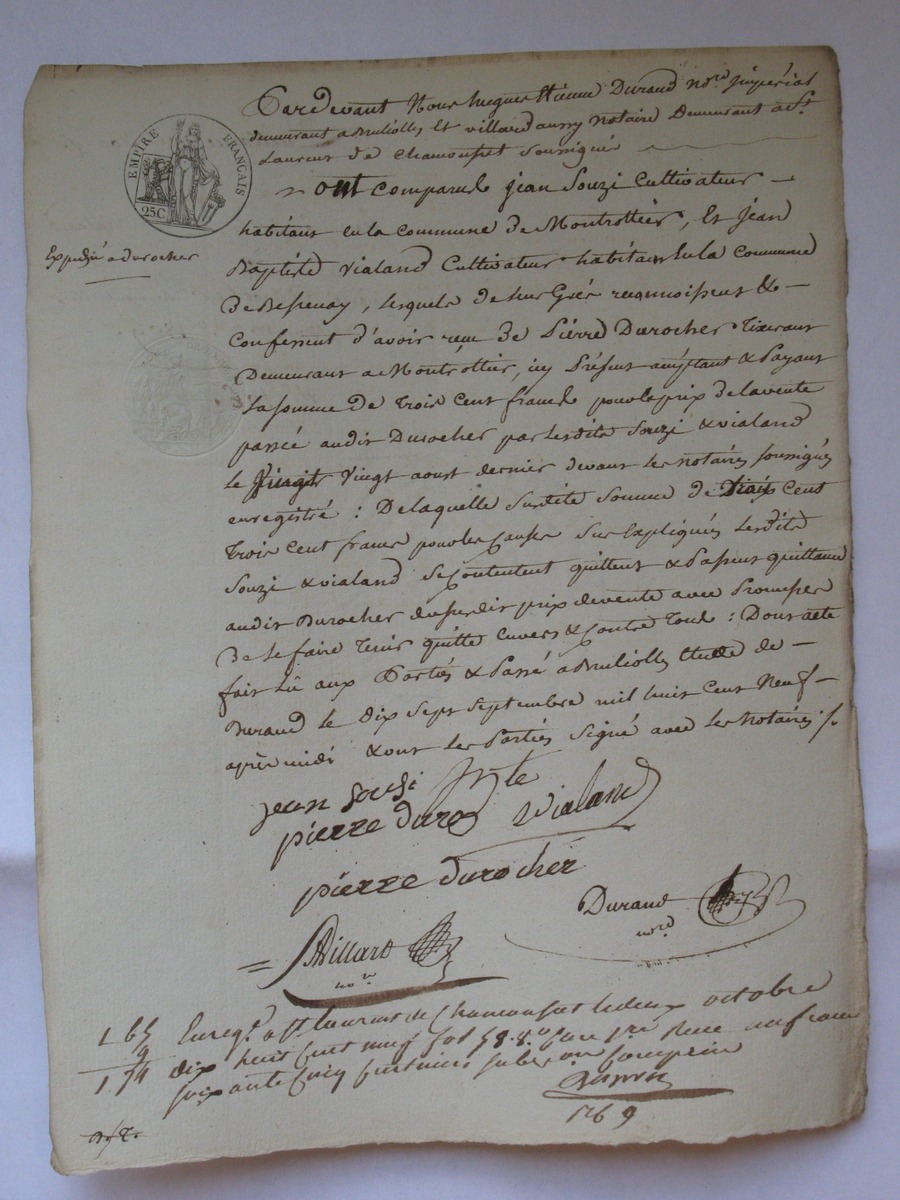 EMPIRE FRANÇAIS
25C
Expedié a durocher
Pardevant Nous hugues Etienne Durand no.re Impérial
demeurant a Bruliolles Et villard aussy notaire Demeurant a St
Laurent de Chamousset Soussignés
ont comparu le jean Souzi Cultivateur
habitant en la commune de Montrottier, Et Jean
Baptiste vialand Cultivateur habitant en la commune
de Bessenay, lesquels de leur Gréé reconnoissent &
Confessent d'avoir reçu de Pierre Durocher Tixerant
Demeurant a Montrottier, icy Présent acceptant & Payant
la somme de Trois Cent francs pour le prix de la vente
passée audit Durocher par lesdits Souzi & vialand
le Vingt aoust dernier devant les notaires soussignés
enregistré : De laquelle susdite Somme de
Trois Cent francs pour les Causes Sus Expliquées lesdits
Souzi & vialand Se Contentent quittent & Passent quittance
audit Durocher du susdit prix de vente avec Promesses
De le faire Tenir quitte Envers & Contre Tous : Dont acte
fait Lû aux Parties & Passé a Bruliolles Etude de
Durand le dix sept septembre mil huit Cent Neuf
après midi & ont les Parties Signé avec les Notaires
jean Souzi
pierre duro vialand
pierre durocher
Durand
no.re
Villard
no.re
1.65 Enreg.é a St Laurent de Chamousset le deux octobre
9 dix huit cent neuf fol 58 Reçu un franc
1.74 soixante cinq centimes
1769